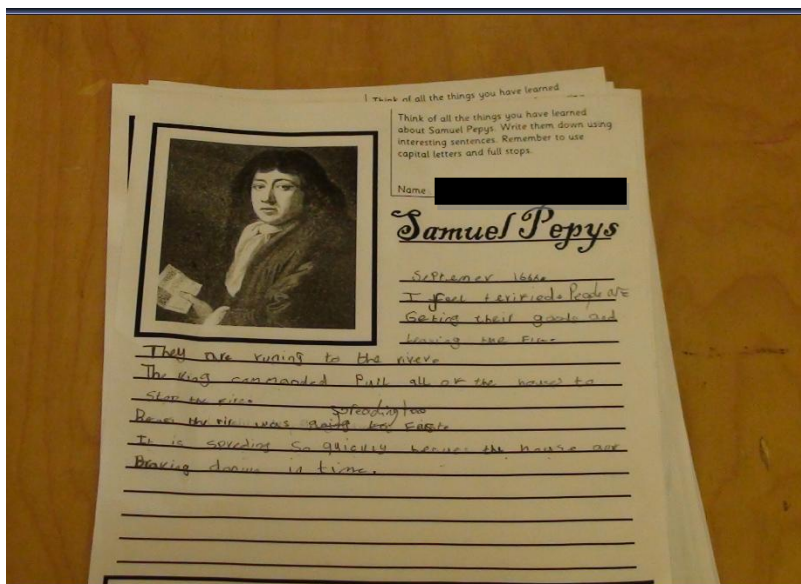 Think of all the things you have learned
Think of all the things you have learned
about Samuel Pepys. Write them down using
interesting sentences. Remember to use
capital letters and full stops.
Name:
Samuel Pepys
I feel People are
Geting their goods and
the Fire
They are runing to the river.
The King commanded Pull all of the houses to
Stop the fire.
spreading too
the fire was going
It is spreding So the house are
in time.